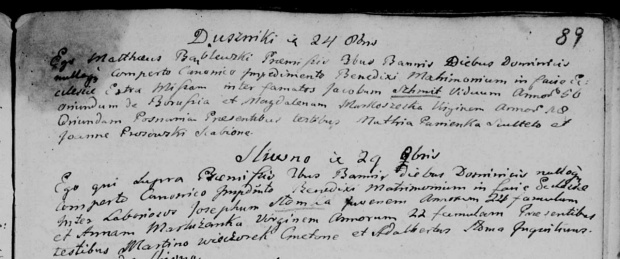 89
Duszniki ie 24 Obris
Ego Matthaeus Bąblewski Præmissis 3bus Bannis Diebus Dominicis
nulloq; Comperto Canonico Impedimento Benedixi Matrimonium in facie Ec-
clesiæ Extra Missam inter famatos Jacobum Schmit Viduum Annor 56
oriundum de Borussia et Magdalenam Virginem Annor 48
Oriundam Posnania Præsentibus testibus Mathia Panienka Sculteto et
Joanne Prosowski Scabione.
Sliwno ie 29 9bris
Ego qui supra Præmissis 3bus Bannis diebus Dominicis nulloq;
Comperto Canonico Impdnto Benedixi Matrimonium in facie Ecclesiæ
Inter Laboriosos Josephum Słoma Juvenem Annorum 24 famulum
et Annam Virginem Annorum 22 famulam Præsentibus
testibus Martino Wieczorek Cmetone et Adalbertus Słoma Inquilinus